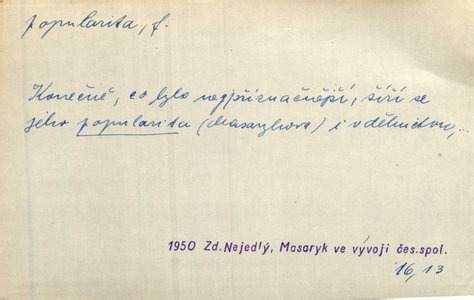 popularita, f.
Konečně, co bylo nejpříznačnější, šíří se
jeho popularita (Masarykova) i v dělnictvu,...
1950 Zd. Nejedlý, Masaryk ve vývoji čes. spol.
16, 13